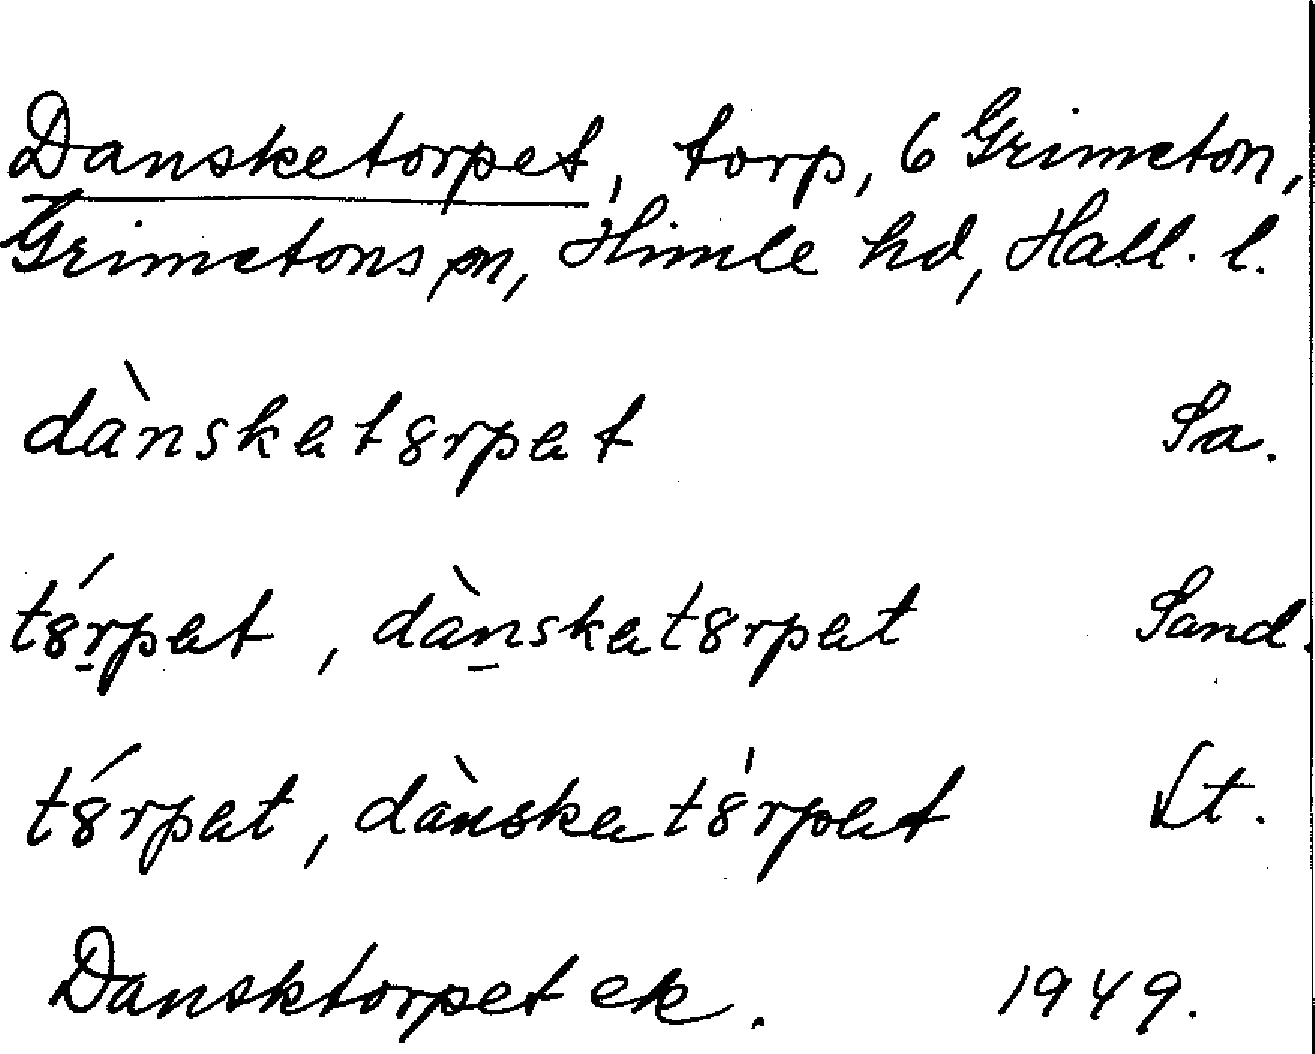 Dansketorpet, torp, 6 Grimeton,
Grimetons sn, Himle hd, Hall. l.
dànskatȣrpat Sa.
tȣ́rpat, dànskatȣrpat Sand.
tȣ́rpat, dànskatȣ̍rpat Lt.
Dansktorpet ek. 1949.